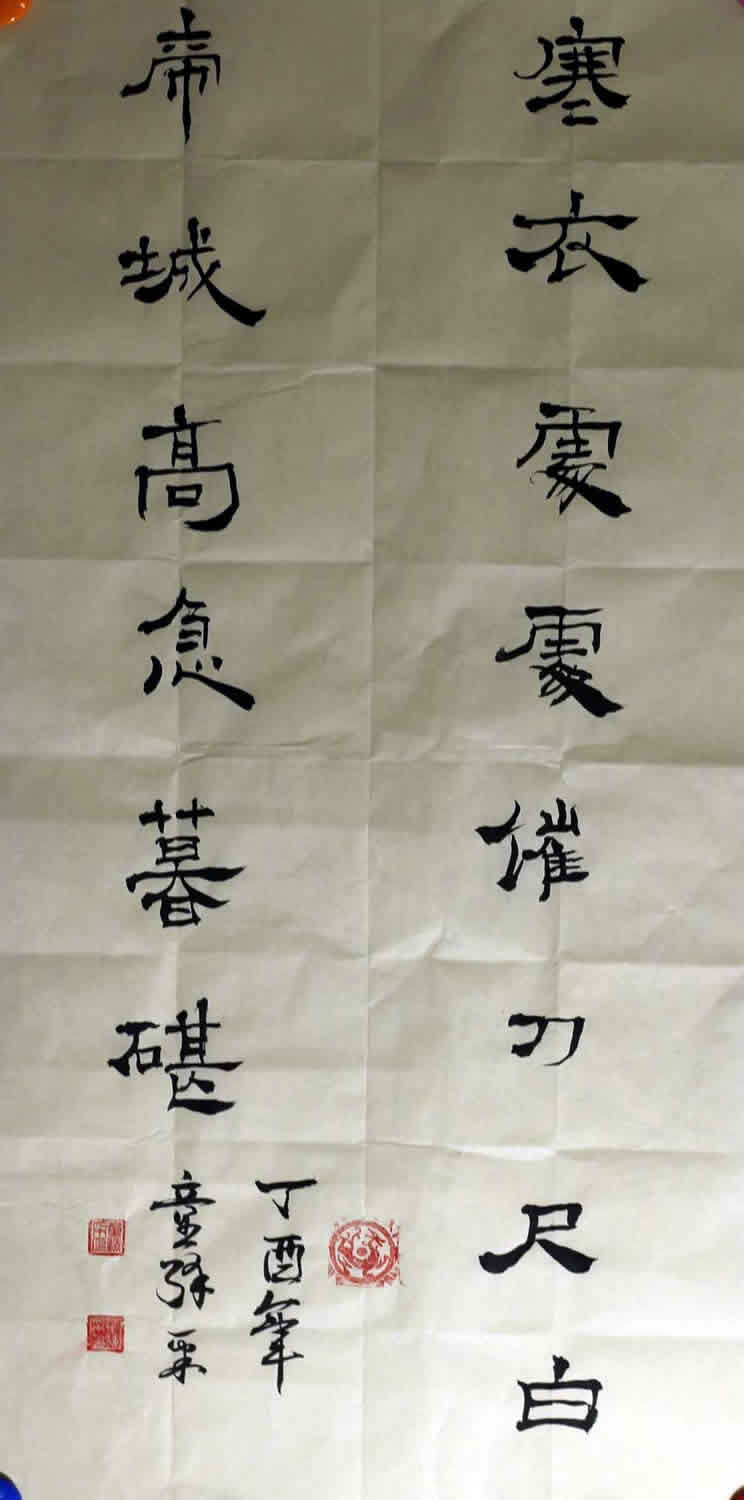 寒衣處處催刀尺白
帝城高急暮碪
丁酉年
童